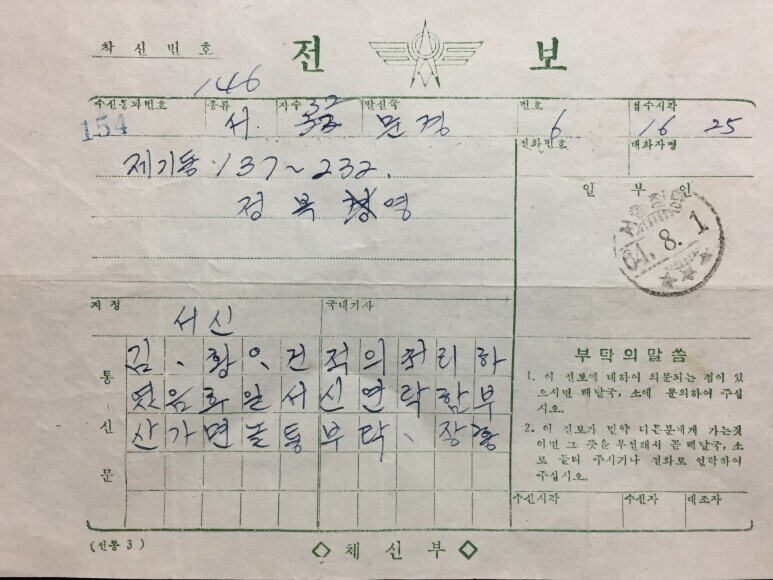 착신번호
전 보
146
수신통과번호 종류 자수 발신국 번호 접수시각
154 서. 32 문경 6 16 25
전화번호 대화자명
제기동·137~232.
정복 영
일 부 인
서울청량
64.8.1
지정 국내기사
서신
통신문
김、황 건 적의처리하
였음화일서신연락함부
산가면 통부탁、장
부탁의말씀
1. 이 전보에 대하여 의문되는 점이 있
으시면 배달국, 소에 문의하여 주십
시오.
2. 이 전보가 만약 다른분에게 가는것
이면 그 뜻을 부전해서 곧 배달국, 소
로 돌려 주시거나 전화로 연락하여
주십시오.
수신시각 수신자 대조자
(전통 3)
체 신 부